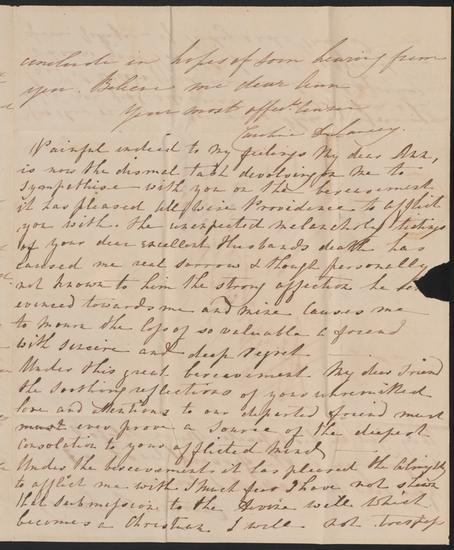 conclude in hopes of soon hearing from
you. Believe me dear Ann
Your most affect. Cousin
Delancey.
Painful indeed to my feelings My dear Ann,
is now the dismal task devolving on me to
sympathise with you on the bereavement
it has pleased All Wise Providence to afflict
you with. The unexpected melancholy tidings
of your dear excellent Husbands death has
caused me real sorrow & though personally
not known to him the strong affection he
evinced towards me and mine causes me
to mourn the loss of so valuable a friend
with sincere and deep regret
Under this great bereavement My dear friend
the soothing reflections of your unremitted
love and attentions to our departed friend must
must ever prove a source of the deepest
consolation to your afflicted mind
Under the bereavement it has pleased the Almighty
to afflict me with I much fear I have not shown
that submission to the Divine will which
becomes a Christian I will not